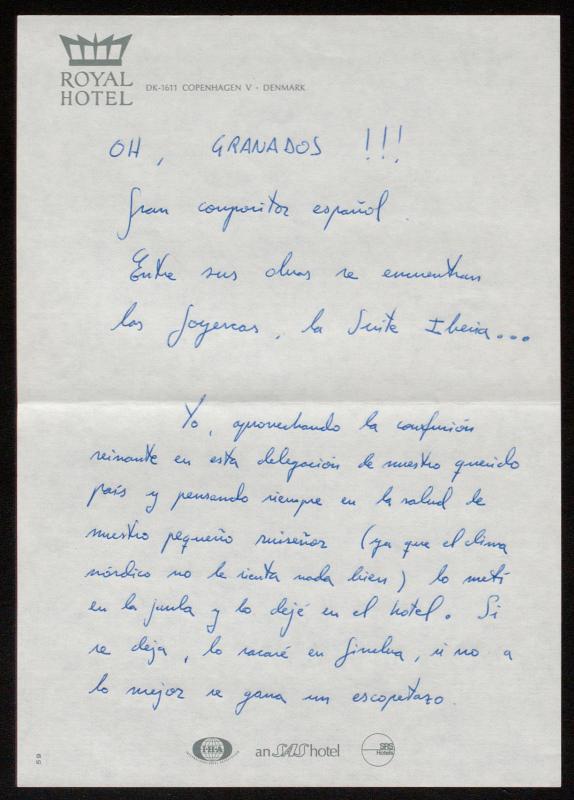 ROYAL
HOTEL
DK-1611 COPENHAGEN V - DENMARK
OH, GRANADOS !!!
Gran compositor español.
Entre sus obras se encuentran
las Goyescas, la Suite Iberia...
Yo, aprovechando la confusión
reinante en esta delegación de nuestro querido
país y pensando siempre en la salud de
nuestro pequeño ruiseñor (ya que el clima
nórdico no le sienta nada bien) lo metí
en la jaula y lo dejé en el hotel. Si
se deja, lo sacaré en Ginebra, si no a
lo mejor se gana un escopetazo.
59
IHA
an SAS hotel
SRS
Hotels